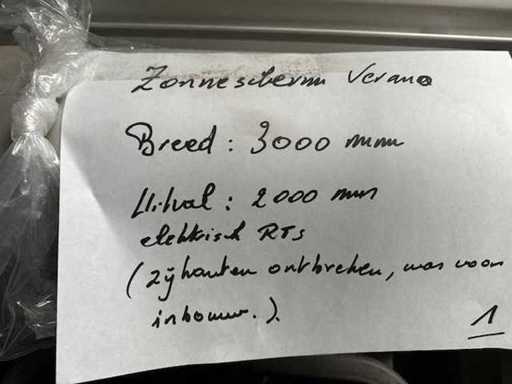 Zonnescherm Verano
Breed: 3000 mm
Uitval: 2000 mm
elektrisch RTS
(zijkanten ontbreken, was voor
inbouw.).
1